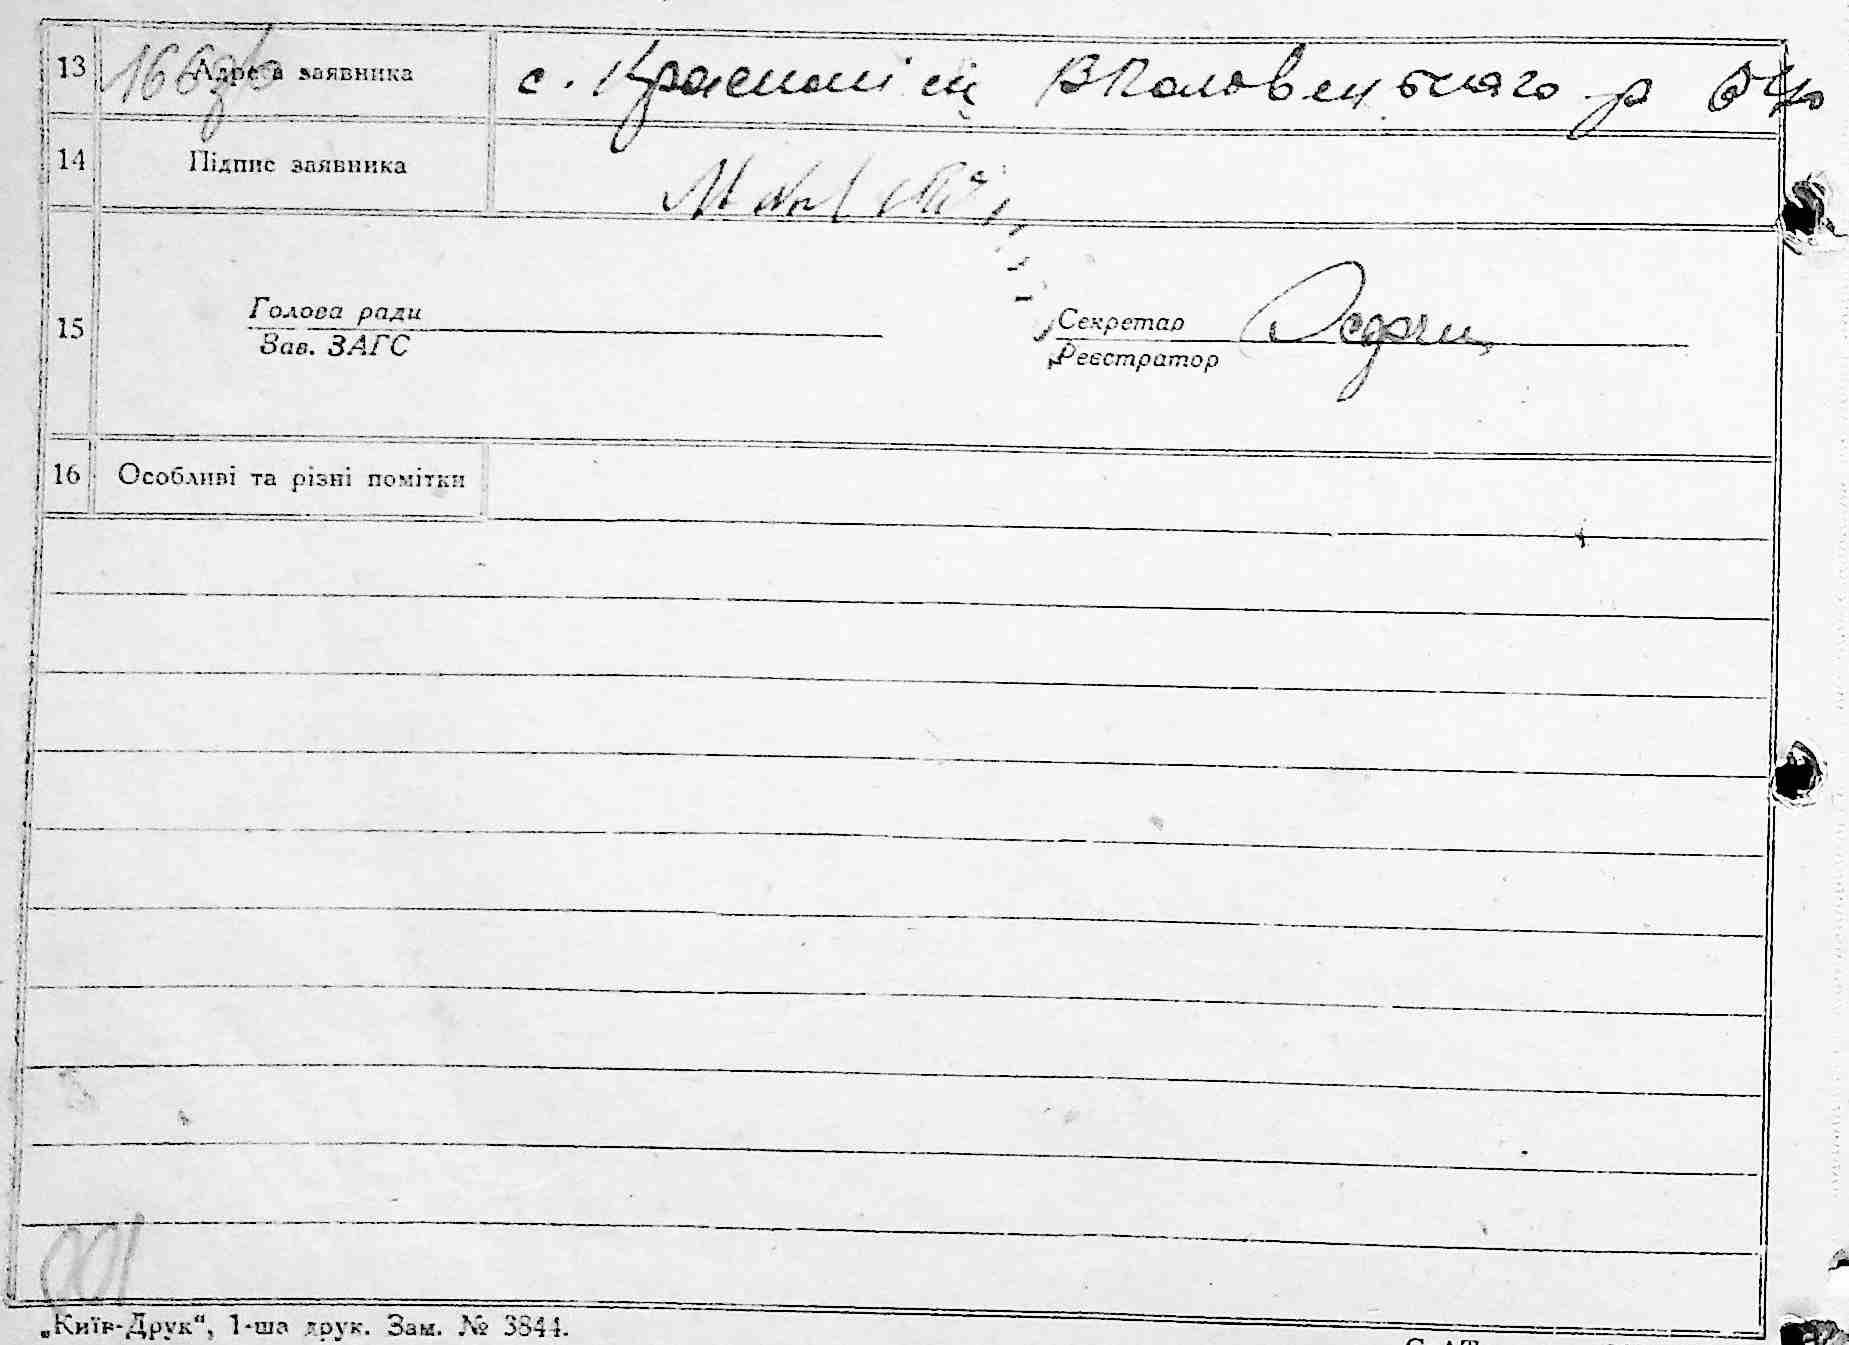 13 166зв Адреса заявника с. Краснопілц ВПоловецького р
14 Підпис заявника
Голова ради Секретар
15 Зав. ЗАГС Реєстратор
16 Особливі та різні помітки
001
„Київ-Друк“, 1-ша друк. Зам. № 3844.